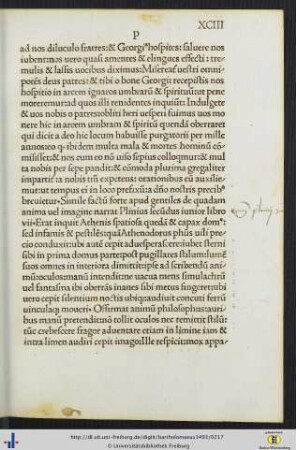 XCIII
P
ad nos diluculo fratres: & Georgiᵒ hospites: saluere nos
iubent: nos uero quasi amentes & elingues effecti: tre-
mulis & lassis uocibus diximus: Misereať uestri omni-
potēs deus patres: & tibi o bone Georgi: recepistis nos
hospitio in arcem ignaros umbrarū & spirituū: ut pene
moreremur: ad quos illi renidentes inquiūt: Indulgete
& uos nobis o patres: obliti heri uesperi fuimus uos mo
nere hic in arcem umbram & spiritū quendā oberrare
qui dicit a deo hic locum habuisse purgatorii per mille
annos: eo q ibidem multa mala & mortes hominū cō-
misisset: & nos cum eo nō uiso sepius colloquimur: & mul
ta nobis per sepe pandit: & cōmoda plurima gregaliter
impartit: a nobis tm̄ expetens: orationibus eū auxilie-
mur: ut tempus ei in loco prefixū: a dn̄o nostris precibᵒ
breuietur. Simile factū forte apud gentiles de quadam
anima uel imagine narrat Plinius secūdus iunior libro
vii. Erat inquit Athenis spatiosa quedā & capax domᵒ:
sed infamis & pestilēs: quā Athenodorus phūs uili pre-
cio conduxit: ubi autē cepit aduesperascere: iubet sterni
sibi in prima domus parte: post pugillares stilum: lumē:
suos omnes in interiora dimittit: ipse ad scribendū ani-
mū: oculos: manū intendit: ne uacua mens simulachrū
uel fantasma ibi oberrās inanes sibi metus fingeret: ubi
uero cepit silentium noctis ubiqꝫ audiuit concuti ferrū
uincula moueri. Offirmat animū philosophus: auri-
bus manū pretendit: nō tollit oculos nec remittit stilū:
tūc crebescere fragor aduentare etiam in limine iam &
intra limen audiri cepit imago: Ille respicit: uidet appa-
http://dl.ub.uni-freiburg.de/diglit/bartholomaeus1493/0217
© Universitätsbibliothek Freiburg